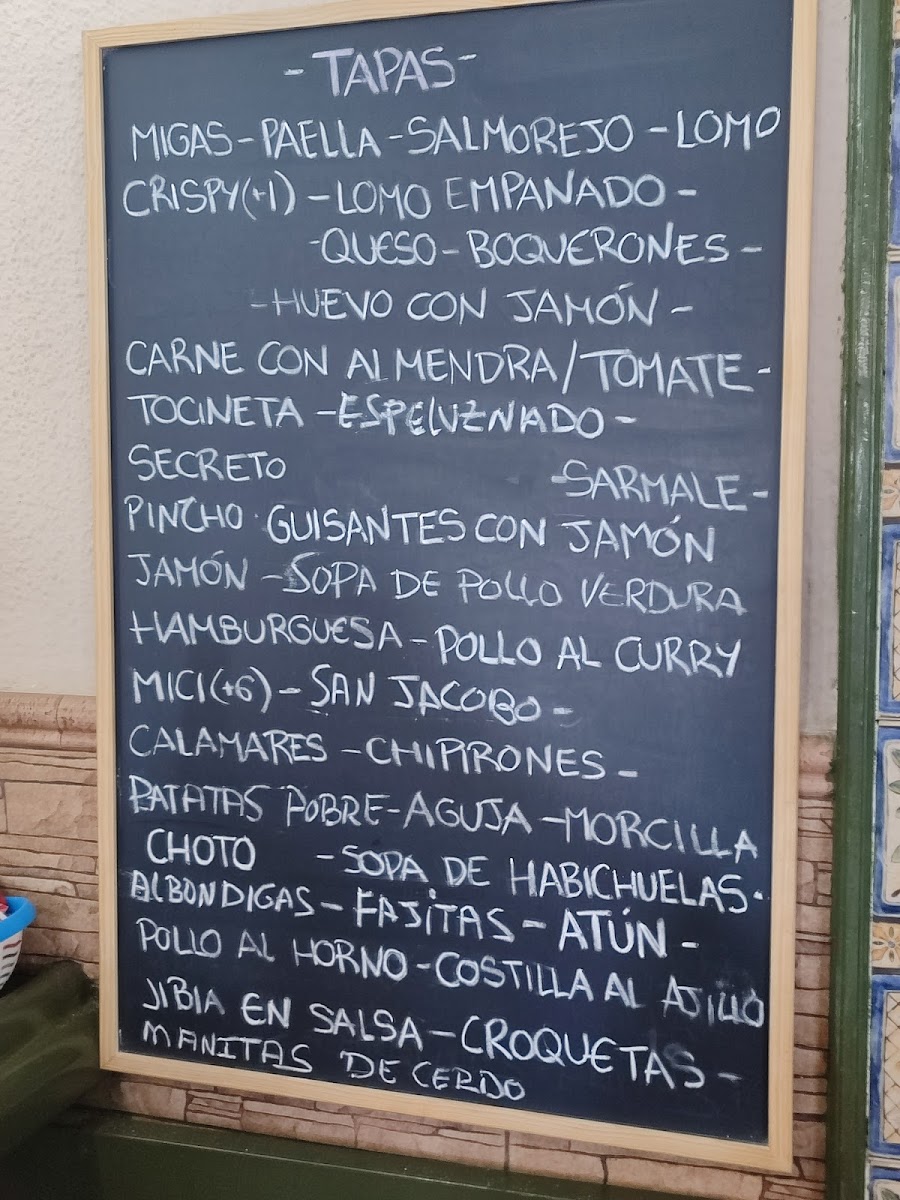 - TAPAS -
MIGAS - PAELLA - SALMOREJO - LOMO
CRISPY(+1) - LOMO EMPANADO -
- QUESO - BOQUERONES -
- HUEVO CON JAMÓN -
CARNE CON ALMENDRA/TOMATE -
TOCINETA - ESPELUZNADO -
SECRETO - SARMALE -
PINCHO · GUISANTES CON JAMÓN
JAMÓN - SOPA DE POLLO VERDURA
HAMBURGUESA - POLLO AL CURRY
MICI(+6) - SAN JACOBO -
CALAMARES - CHIPIRONES -
PATATAS POBRE - AGUJA - MORCILLA
CHOTO - SOPA DE HABICHUELAS -
ALBONDIGAS - FAJITAS - ATÚN -
POLLO AL HORNO - COSTILLA AL AJILLO
JIBIA EN SALSA - CROQUETAS -
MANITAS DE CERDO